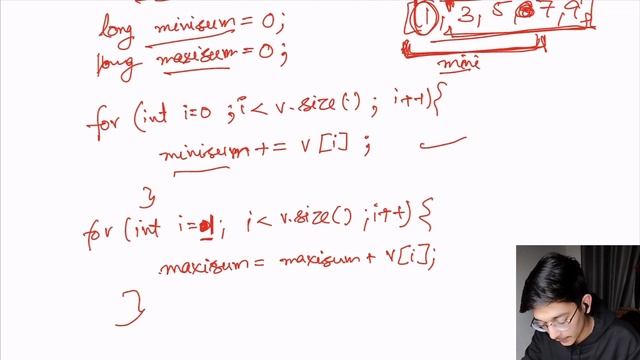 long minisum = 0;
[1, 3, 5, 7, 9]
long maxisum = 0;
mini
for (int i=0 ; i < v.size() ; i++){
minisum += v[i] ;
}
for (int i=1; i < v.size() ; i++) {
maxisum = maxisum + v[i];
}